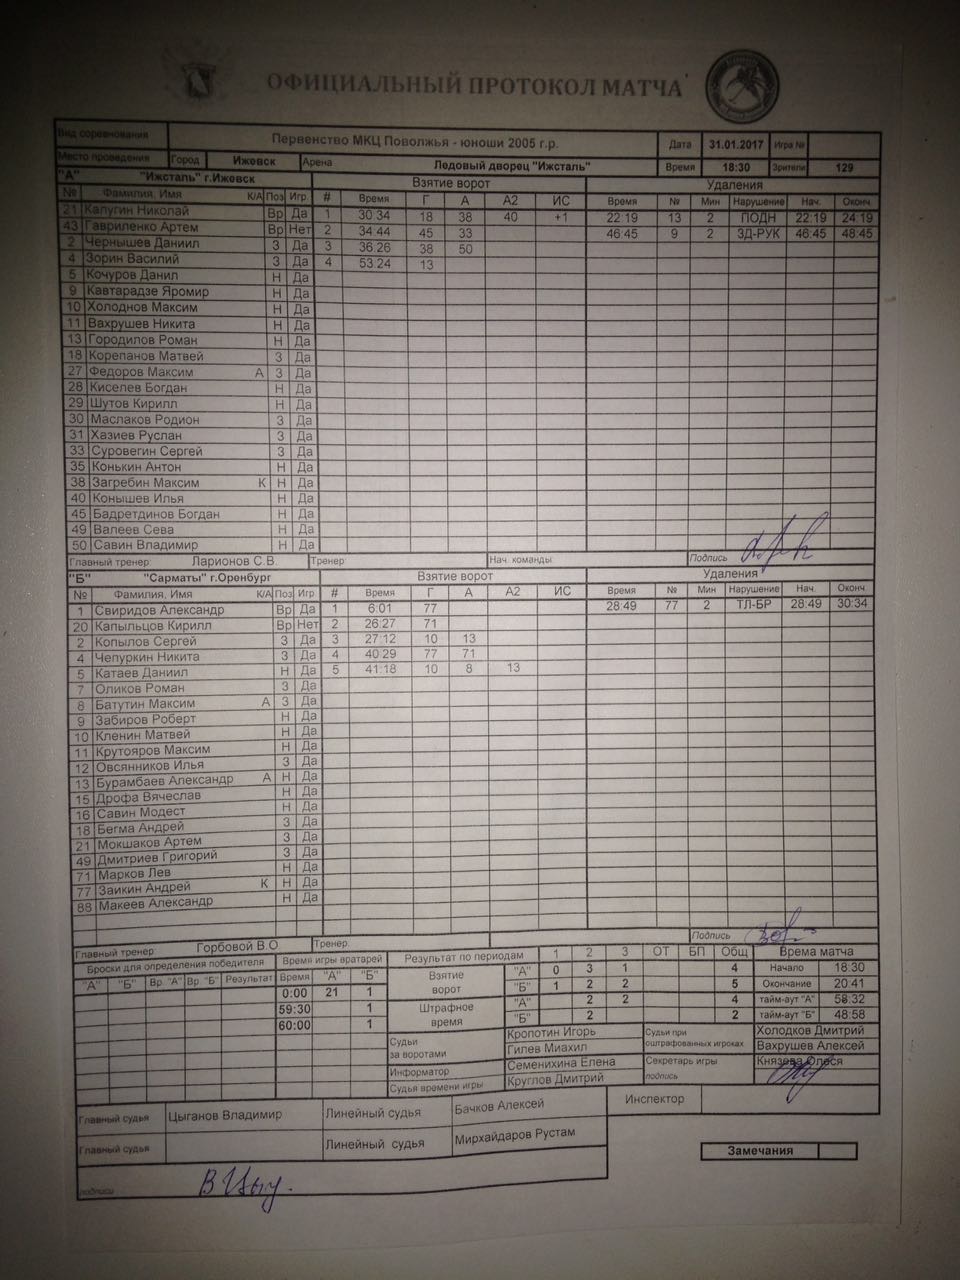 ОФИЦИАЛЬНЫЙ ПРОТОКОЛ МАТЧА
Вид соревнования Первенство МКЦ Поволжья - юноши 2005 г.р. Дата 31.01.2017 Игра №
Место проведения Город Ижевск Арена Ледовый дворец "Ижсталь" Время 18:30 Зрители 129
"А" "Ижсталь" г.Ижевск Взятие ворот Удаления
№ Фамилия, Имя К/А Поз Игр # Время Г А А2 ИС Время № Мин Нарушение Нач. Оконч
21 Калугин Николай Вр Да 1 30:34 18 38 40 +1 22:19 13 2 ПОДН 22:19 24:19
43 Гавриленко Артем Вр Нет 2 34:44 45 33 46:45 9 2 ЗД-РУК 46:45 48:45
2 Чернышев Даниил З Да 3 36:26 38 50
4 Зорин Василий З Да 4 53:24 13
5 Кочуров Данил Н Да
9 Кавтарадзе Яромир Н Да
10 Холоднов Максим Н Да
11 Вахрушев Никита Н Да
13 Городилов Роман Н Да
18 Корепанов Матвей З Да
27 Федоров Максим А З Да
28 Киселев Богдан Н Да
29 Шутов Кирилл Н Да
30 Маслаков Родион З Да
31 Хазиев Руслан З Да
33 Суровегин Сергей З Да
35 Конькин Антон Н Да
38 Загребин Максим К Н Да
40 Конышев Илья Н Да
45 Бадретдинов Богдан Н Да
49 Валеев Сева Н Да
50 Савин Владимир Н Да
Главный тренер: Ларионов С.В. Тренер: Нач. команды Подпись
"Б" "Сарматы" г.Оренбург Взятие ворот Удаления
№ Фамилия, Имя К/А Поз Игр # Время Г А А2 ИС Время № Мин Нарушение Нач. Оконч
1 Свиридов Александр Вр Да 1 6:01 77 28:49 77 2 ТЛ-БР 28:49 30:34
20 Капыльцов Кирилл Вр Нет 2 26:27 71
2 Копылов Сергей З Да 3 27:12 10 13
4 Чепуркин Никита З Да 4 40:29 77 71
5 Катаев Даниил Н Да 5 41:18 10 8 13
7 Оликов Роман З Да
8 Батутин Максим А З Да
9 Забиров Роберт Н Да
10 Кленин Матвей Н Да
11 Крутояров Максим Н Да
12 Овсянников Илья З Да
13 Бурамбаев Александр А Н Да
15 Дрофа Вячеслав Н Да
16 Савин Модест Н Да
18 Бегма Андрей З Да
21 Мокшаков Артем З Да
49 Дмитриев Григорий З Да
71 Марков Лев Н Да
77 Заикин Андрей К Н Да
88 Макеев Александр Н Да
Главный тренер: Горбовой В.О. Тренер: Подпись
Броски для определения победителя Время игры вратарей Результат по периодам 1 2 3 ОТ БП Общ Врема матча
"А" "Б" Вр "А" Вр "Б" Результат Время "А" "Б" Взятие ворот "А" 0 3 1 4 Начало 18:30
0:00 21 1 "Б" 1 2 2 5 Окончание 20:41
59:30 1 Штрафное время "А" 2 2 4 тайм-аут "А" 58:32
60:00 1 "Б" 2 2 тайм-аут "Б" 48:58
Судьи за воротами Кропотин Игорь Судьи при оштрафованных игроках Холодков Дмитрий
Гилев Миахил Вахрушев Алексей
Информатор Семенихина Елена Секретарь игры Князева Олеся
Судья времени игры Круглов Дмитрий подпись
Главный судья Цыганов Владимир Линейный судья Бачков Алексей Инспектор
Главный судья Линейный судья Мирхайдаров Рустам
Замечания
подписи